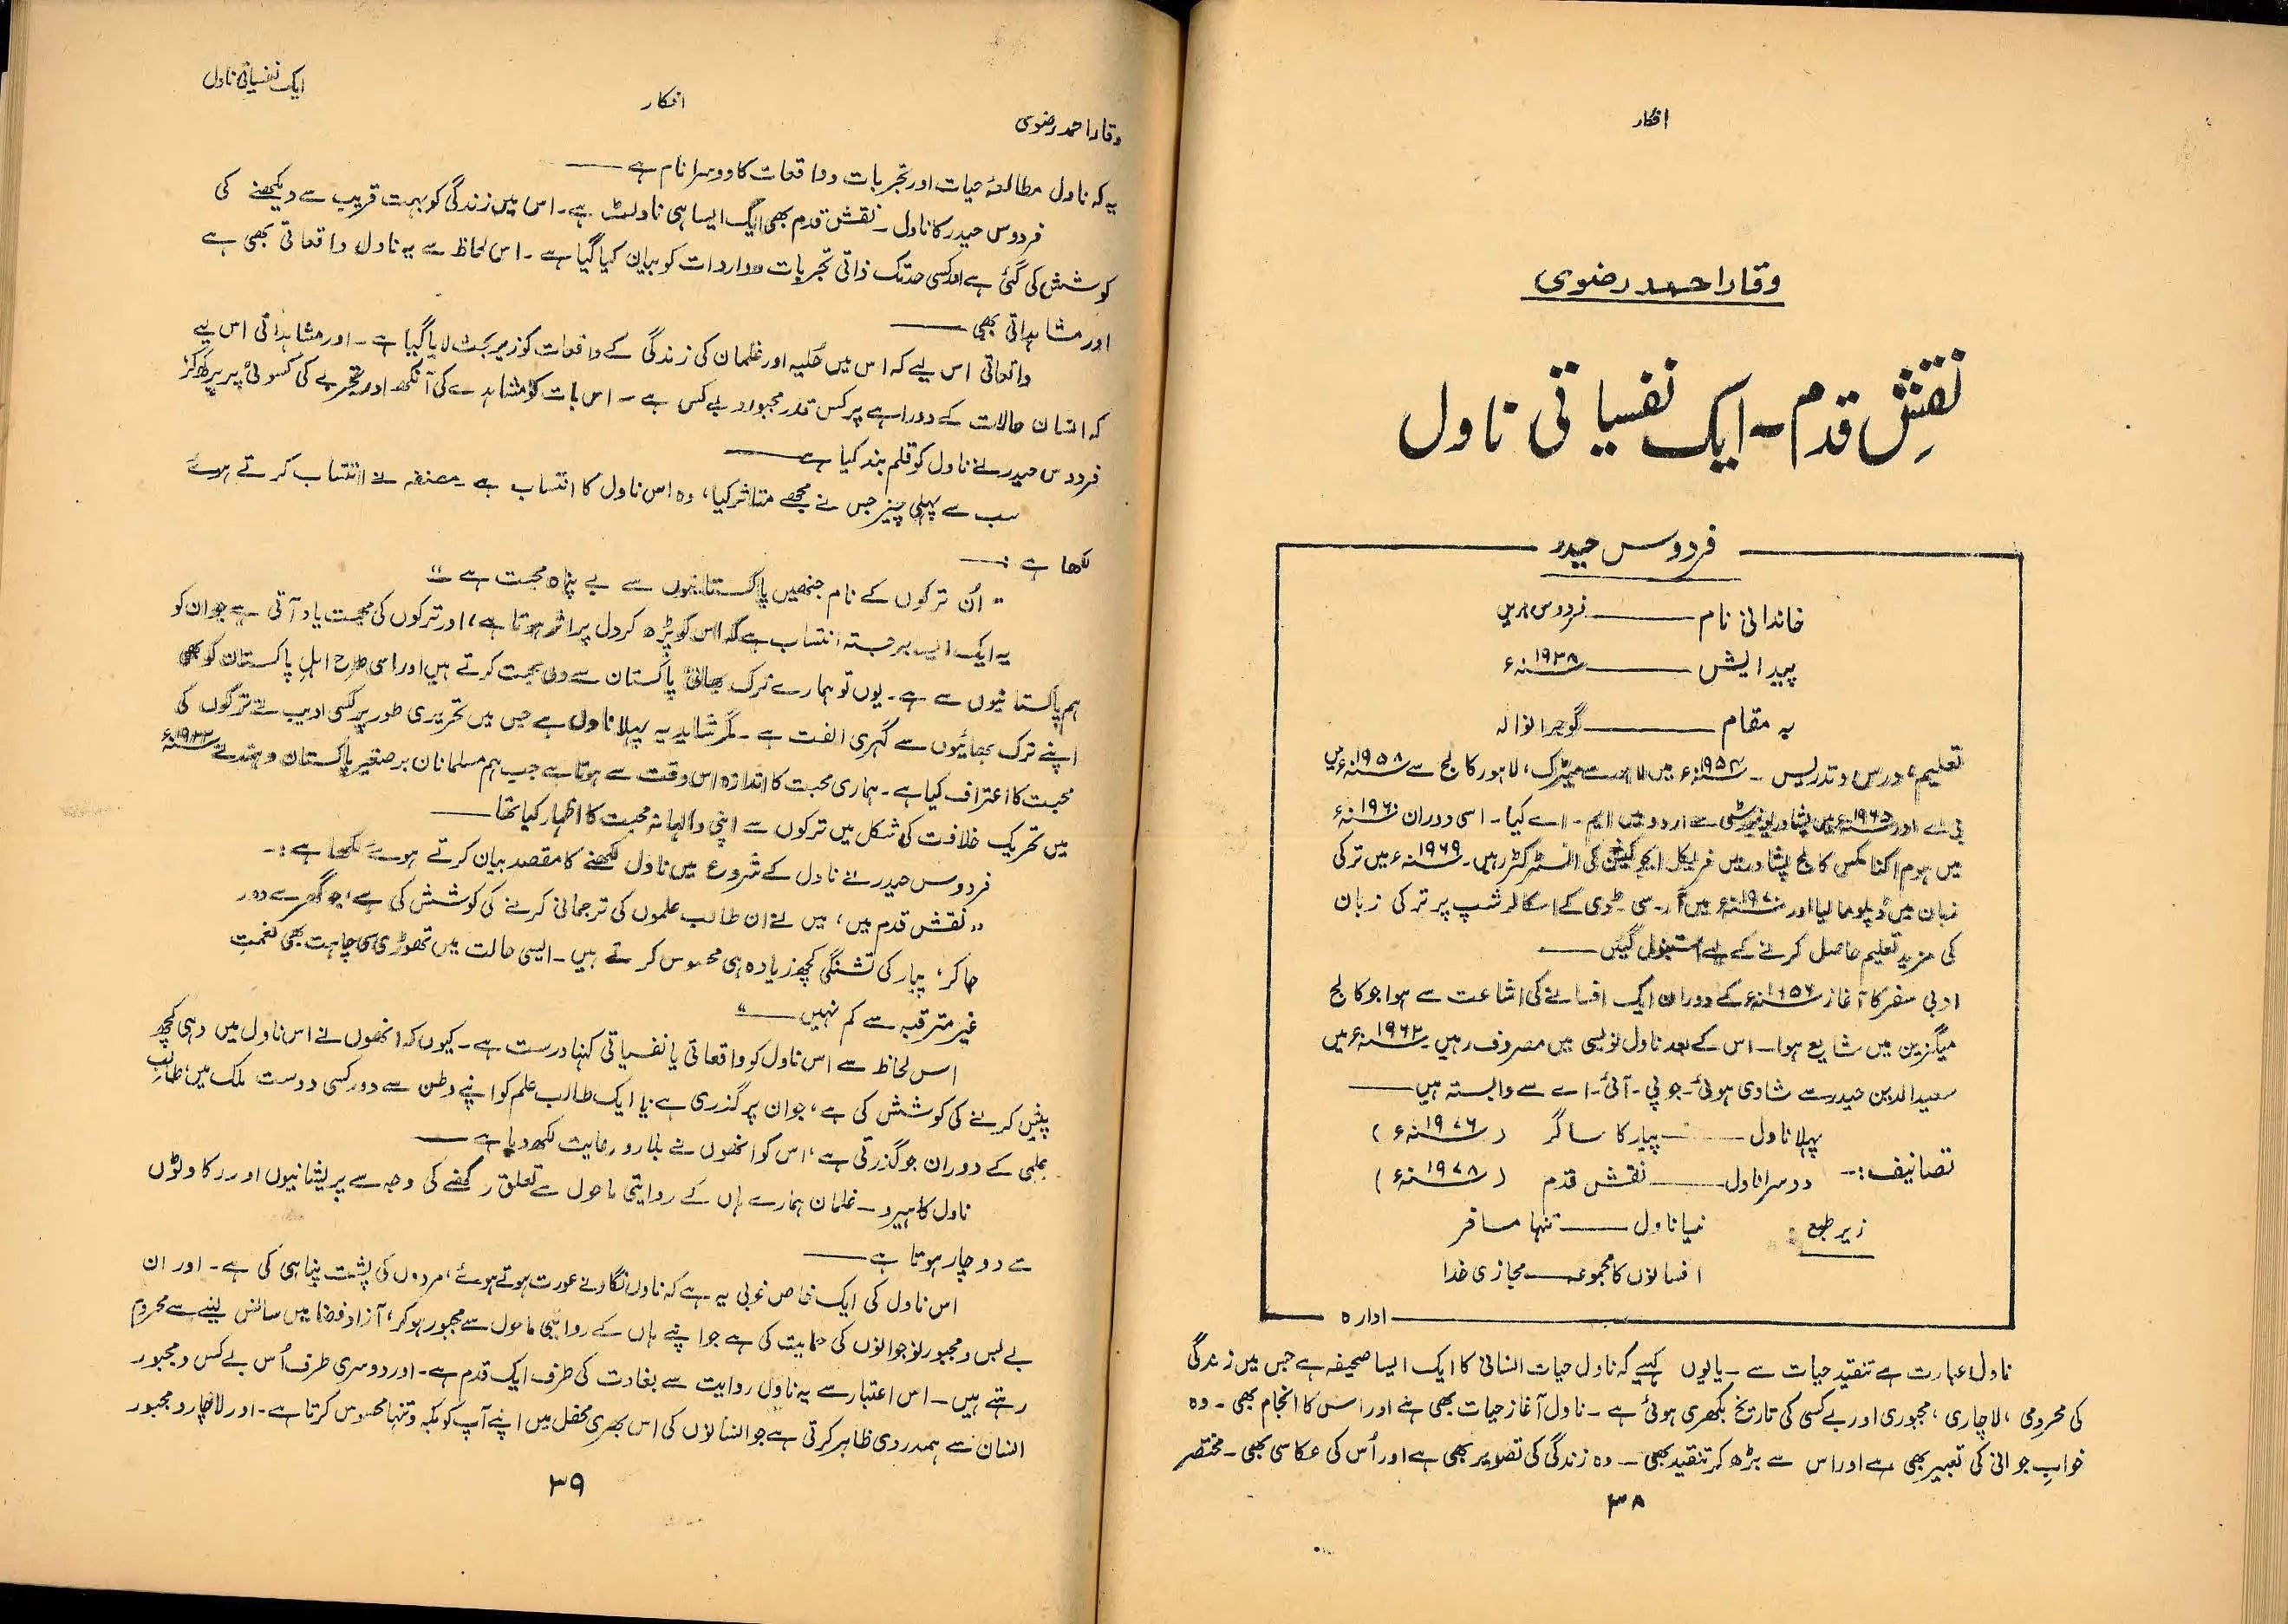 افکار
وقار احمد رضوی
نقشِ قدم - ایک نفسیاتی ناول
فردوس حیدر
خاندانی نام —— فردوس
پیدایش —— ۱۹۳۸ء
بہ مقام —— گوجرانوالہ
تعلیم، درس و تدریس - ۱۹۵۴ء میں لاہور سے میٹرک، لاہور کالج سے ۱۹۵۸ء میں
بی اے اور ۱۹۶۵ء میں پشاور یونیورسٹی سے اردو میں ایم - اے کیا - اسی دوران ۱۹۶۰ء
میں ہوم اکنامکس کالج پشاور میں فزیکل ایجوکیشن کی انسٹرکٹر رہیں - ۱۹۶۹ء میں ترکی
زبان میں ڈپلوما لیا اور ۱۹۷۰ء میں آر - سی - ڈی کے اسکالر شپ پر ترکی زبان
کی مزید تعلیم حاصل کرنے کے لیے استنبول گئیں ——
ادبی سفر کا آغاز ۱۹۵۶ء کے دوران ایک افسانے کی اشاعت سے ہوا جو کالج
میگزین میں شایع ہوا - اس کے بعد ناول نویسی میں مصروف رہیں - ۱۹۶۲ء میں
سعید الدین حیدر سے شادی ہوئی - جو پی - آئی - اے سے وابستہ ہیں ——
تصانیف :- پہلا ناول —— پیار کا ساگر (۱۹۷۶ء)
دوسرا ناول —— نقش قدم (۱۹۷۸ء)
زیر طبع : نیا ناول —— تنہا مسافر
افسانوں کا مجموعہ —— مجازی خدا
ادارہ
ناول عبارت ہے تنقید حیات سے - یا یوں کہیے کہ ناول حیات انسانی کا ایک ایسا صحیفہ ہے جس میں زندگی
کی محرومی، لاچاری، مجبوری اور بے کسی کی تاریخ بکھری ہوئی ہے - ناول آغاز حیات بھی ہے اور اس کا انجام بھی - وہ
خواب جوانی کی تعبیر بھی ہے اور اس سے بڑھ کر تنقید بھی - وہ زندگی کی تصویر بھی ہے اور اُس کی عکاسی بھی - مختصر
۳۸
ایک نفسیاتی ناول
افکار
وقار احمد رضوی
یہ کہ ناول مطالعۂ حیات اور تجربات و واقعات کا دوسرا نام ہے ——
فردوس حیدر کا ناول - نقش قدم بھی ایک ایسا ہی ناولٹ ہے - اس میں زندگی کو بہت قریب سے دیکھنے کی
کوشش کی گئی ہے اور کسی حد تک ذاتی تجربات و واردات کو بیان کیا گیا ہے - اس لحاظ سے یہ ناول واقعاتی بھی ہے
اور مشاہداتی بھی ——
واقعاتی اس لیے کہ اس میں حُلیہ اور غلمان کی زندگی کے واقعات کو زیر بحث لایا گیا ہے - اور مشاہداتی اس لیے
کہ انسان حالات کے دوراہے پر کس قدر مجبور و بے کس ہے - اس بات کو مشاہدے کی آنکھ اور تجربے کی کسوٹی پر پرکھ کر
فردوس حیدر نے ناول کو قلم بند کیا ہے ——
سب سے پہلی چیز جس نے مجھے متاثر کیا، وہ اس ناول کا انتساب ہے - مصنفہ نے انتساب کرتے ہوئے
لکھا ہے :—
" اُن ترکوں کے نام جنھیں پاکستانیوں سے بے پناہ محبت ہے "
یہ ایک ایسا برجستہ انتساب ہے کہ اس کو پڑھ کر دل پر اثر ہوتا ہے، اور ترکوں کی محبت یاد آتی ہے جو ان کو
ہم پاکستانیوں سے ہے - یوں تو ہمارے ترک بھائی پاکستان سے دلی محبت کرتے ہیں اور اسی طرح اہل پاکستان کو بھی
اپنے ترک بھائیوں سے گہری الفت ہے - مگر شاید یہ پہلا ناول ہے جس میں تحریری طور پر کسی ادیب نے ترکوں کی
محبت کا اعتراف کیا ہے - ہماری محبت کا اندازہ اس وقت سے ہوتا ہے جب ہم مسلمانان برصغیر پاکستان و ہند نے
میں تحریک خلافت کی شکل میں ترکوں سے اپنی والہانہ محبت کا اظہار کیا تھا ——
فردوس حیدر نے ناول کے شروع میں ناول لکھنے کا مقصد بیان کرتے ہوئے لکھا ہے :-
" نقش قدم میں، میں نے ان طالب علموں کی ترجمانی کرنے کی کوشش کی ہے، جو گھر سے دور
جا کر، پیار کی تشنگی کچھ زیادہ ہی محسوس کرتے ہیں - ایسی حالت میں تھوڑی سی چاہت بھی نعمتِ
غیر مترقبہ سے کم نہیں —— "
اس لحاظ سے اس ناول کو واقعاتی یا نفسیاتی کہنا درست ہے - کیوں کہ انھوں نے اس ناول میں وہی کچھ
پیش کرنے کی کوشش کی ہے، جو ان پر گذری ہے، یا ایک طالب علم کو اپنے وطن سے دور کسی دوست ملک میں، طالبِ
علمی کے دوران جو گذرتی ہے، اس کو انھوں نے بلا رو رعایت لکھ دیا ہے ——
ناول کا ہیرو - غلمان ہمارے ہاں کے روایتی ماحول سے تعلق رکھنے کی وجہ سے پریشانیوں اور رکاوٹوں
سے دوچار ہوتا ہے ——
اس ناول کی ایک خاص خوبی یہ ہے کہ ناول نگار نے عورت ہوتے ہوئے، مردوں کی پشت پناہی کی ہے - اور ان
بے بس و مجبور نوجوانوں کی حمایت کی ہے جو اپنے ہاں کے روایتی ماحول سے مجبور ہو کر، آزاد فضا میں سانس لینے سے محروم
رہتے ہیں - اس اعتبار سے یہ ناول روایت سے بغاوت کی طرف ایک قدم ہے - اور دوسری طرف اُس بے کس و مجبور
انسان سے ہمدردی ظاہر کرتی ہے جو انسانوں کی اس بھری محفل میں اپنے آپ کو یکہ و تنہا محسوس کرتا ہے - اور لاچار و مجبور
۳۹